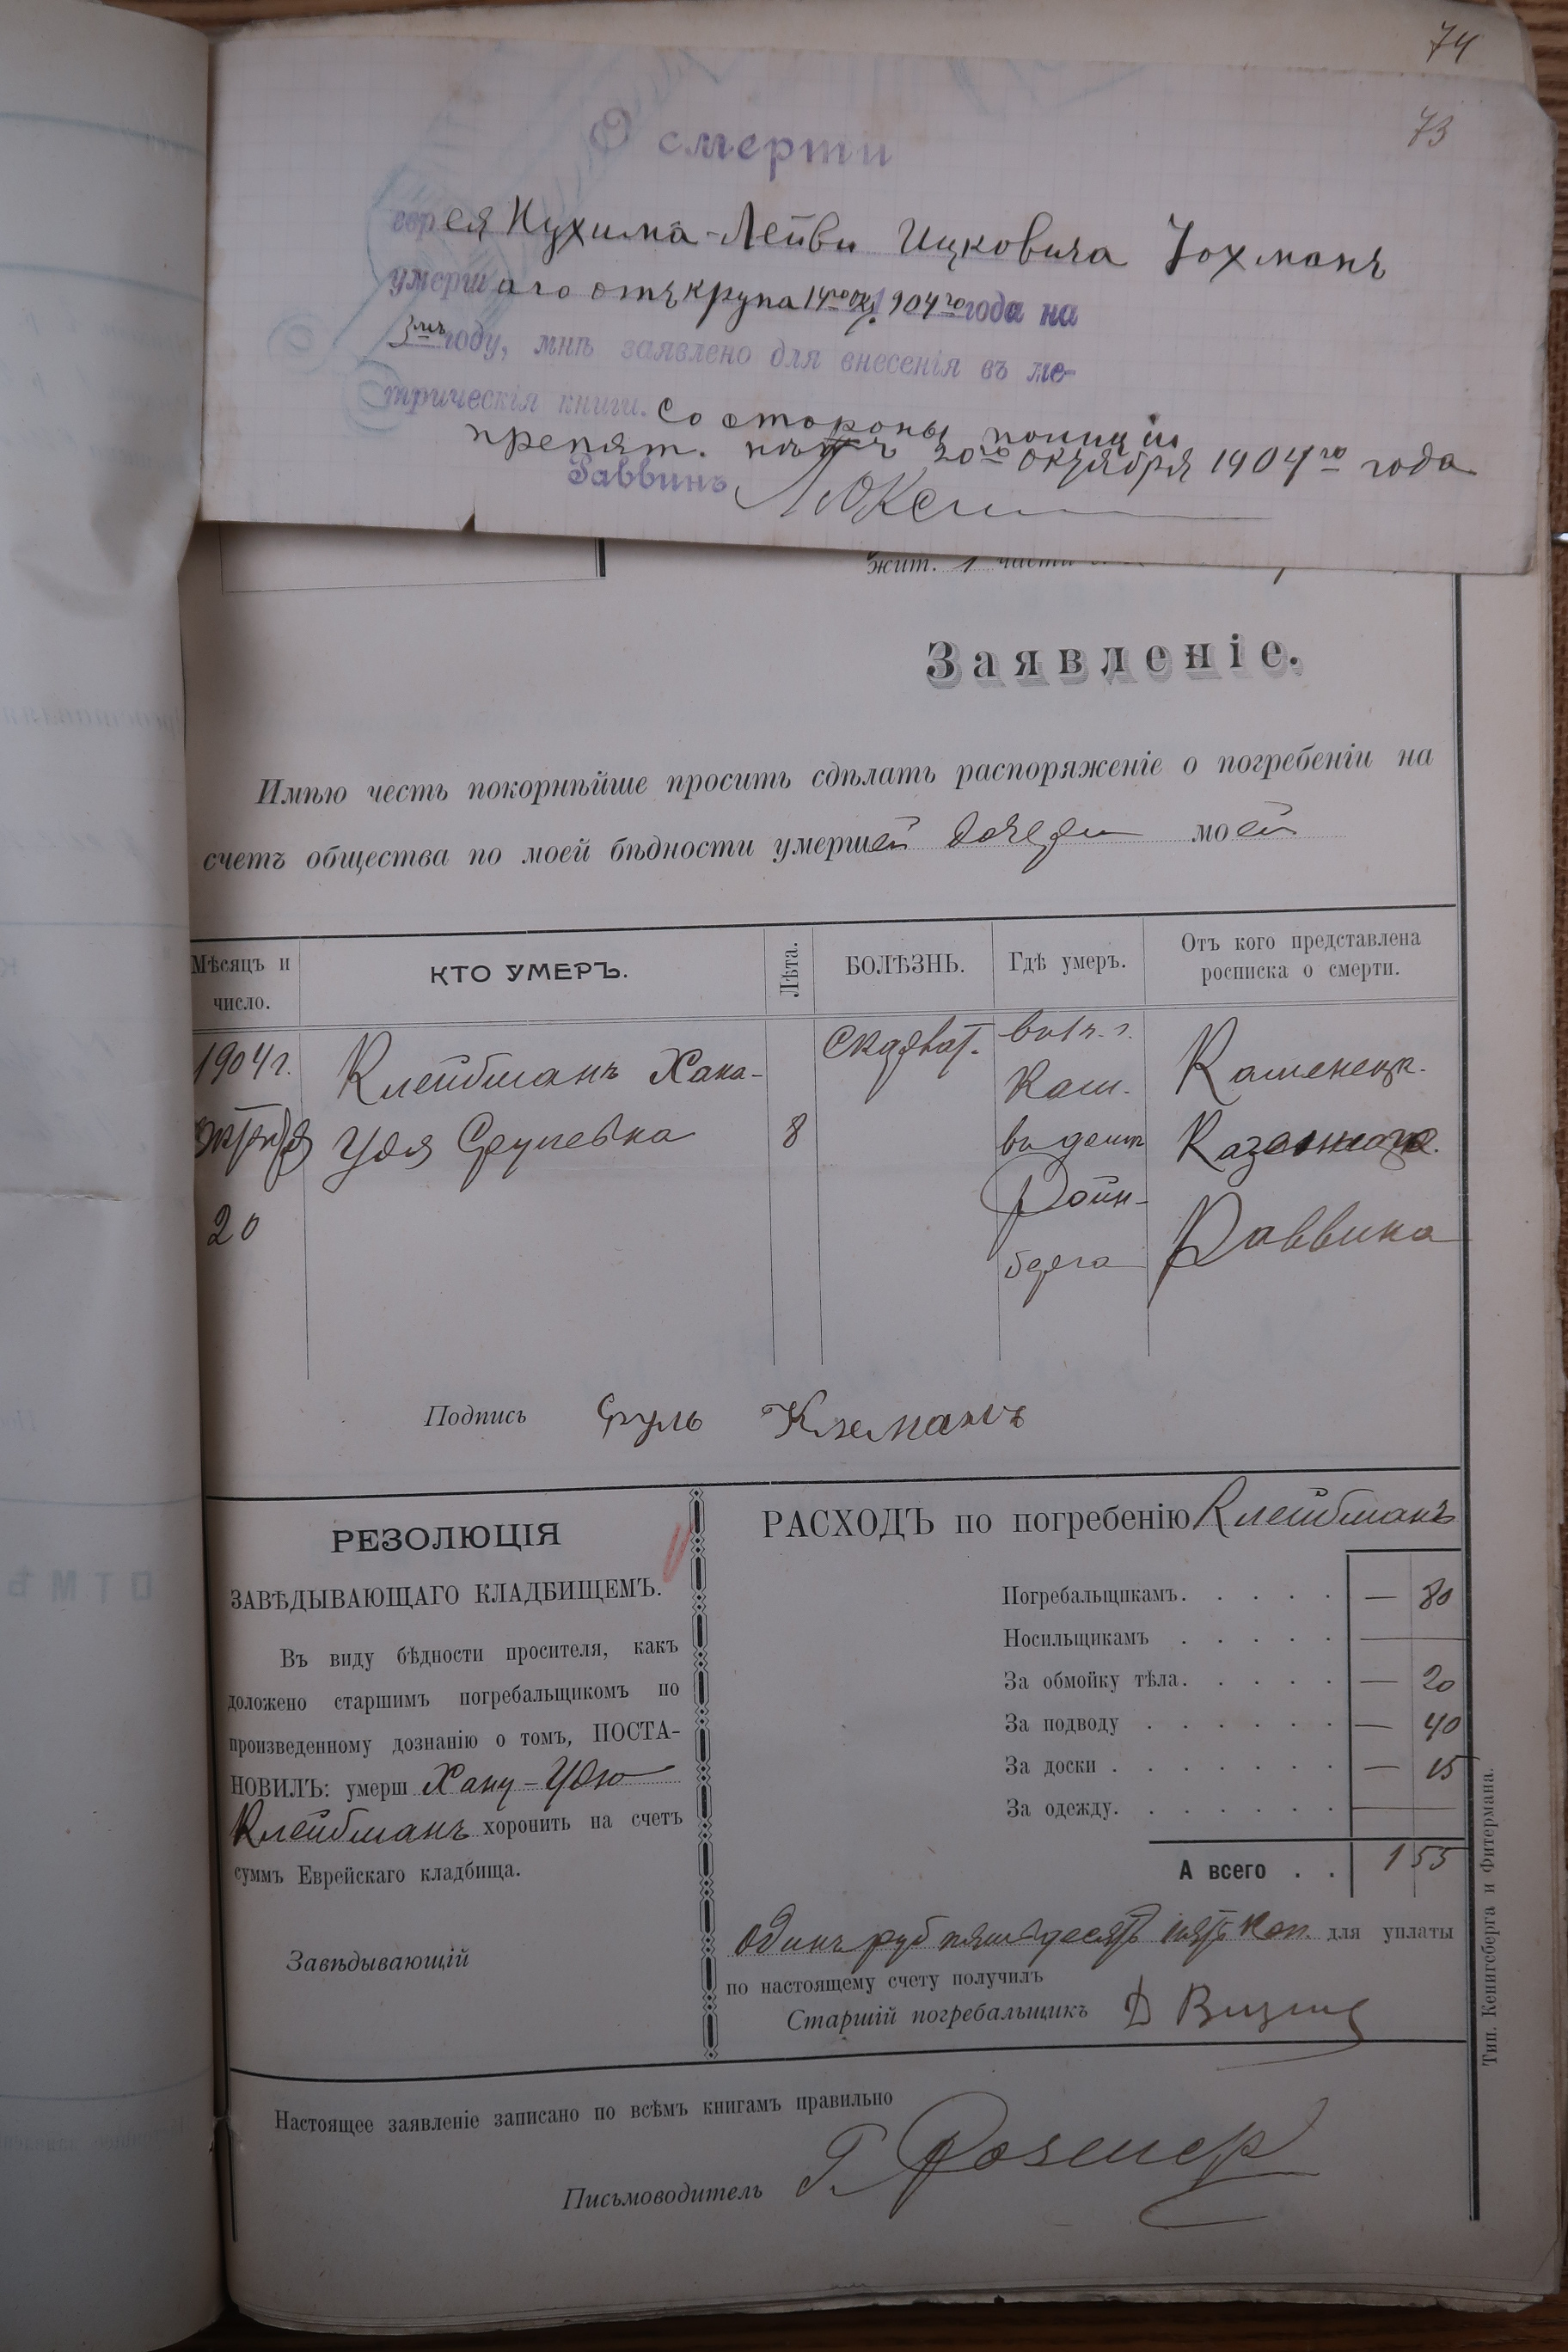 74
73
О смерти
еврея Нухима-Лейви Ицковича Гохманъ
умершаго отъ крупа 14го Окт. 1904го года на
3мъ году, мнѣ заявлено для внесенія въ ме-
трическія книги. Со стороны полиціи
препят. нѣтъ 20го октября 1904го года
Раввинъ
жит. 1 части
Заявленіе.
Имѣю честь покорнѣйше просить сдѣлать распоряженіе о погребеніи на
счетъ общества по моей бѣдности умершей дочери моей
Мѣсяцъ и число.
КТО УМЕРЪ.
Лѣта.
БОЛѢЗНЬ.
Гдѣ умеръ.
Отъ кого представлена росписка о смерти.
1904 г.
октября
20
Клейбманъ Хана-
Удя Срулевна
8
Скарлат.
въ г.
Кам.
въ домѣ
Ройн-
берга
Каменецк.
Казеннаго
Раввина
Подпись Сруль
РЕЗОЛЮЦІЯ
ЗАВѢДЫВАЮЩАГО КЛАДБИЩЕМЪ.
Въ виду бѣдности просителя, какъ
доложено старшимъ погребальщикомъ по
произведенному дознанію о томъ, ПОСТА-
НОВИЛЪ: умерш Хану-Удю
Клейбманъ хоронить на счетъ
суммъ Еврейскаго кладбища.
Завѣдывающій
РАСХОДЪ по погребенію Клейбманъ
Погребальщикамъ. . . . . — 80
Носильщикамъ . . . . . —
За обмойку тѣла. . . . . — 20
За подводу . . . . . . — 40
За доски . . . . . . . — 15
За одежду. . . . . . . —
А всего . . 1 55
Одинъ руб пятьдесятъ пять коп. для уплаты
по настоящему счету получилъ
Старшій погребальщикъ Д
Настоящее заявленіе записано по всѣмъ книгамъ правильно
Письмоводитель Г. Розенер
Тип. Кенигсберга и Фитермана.